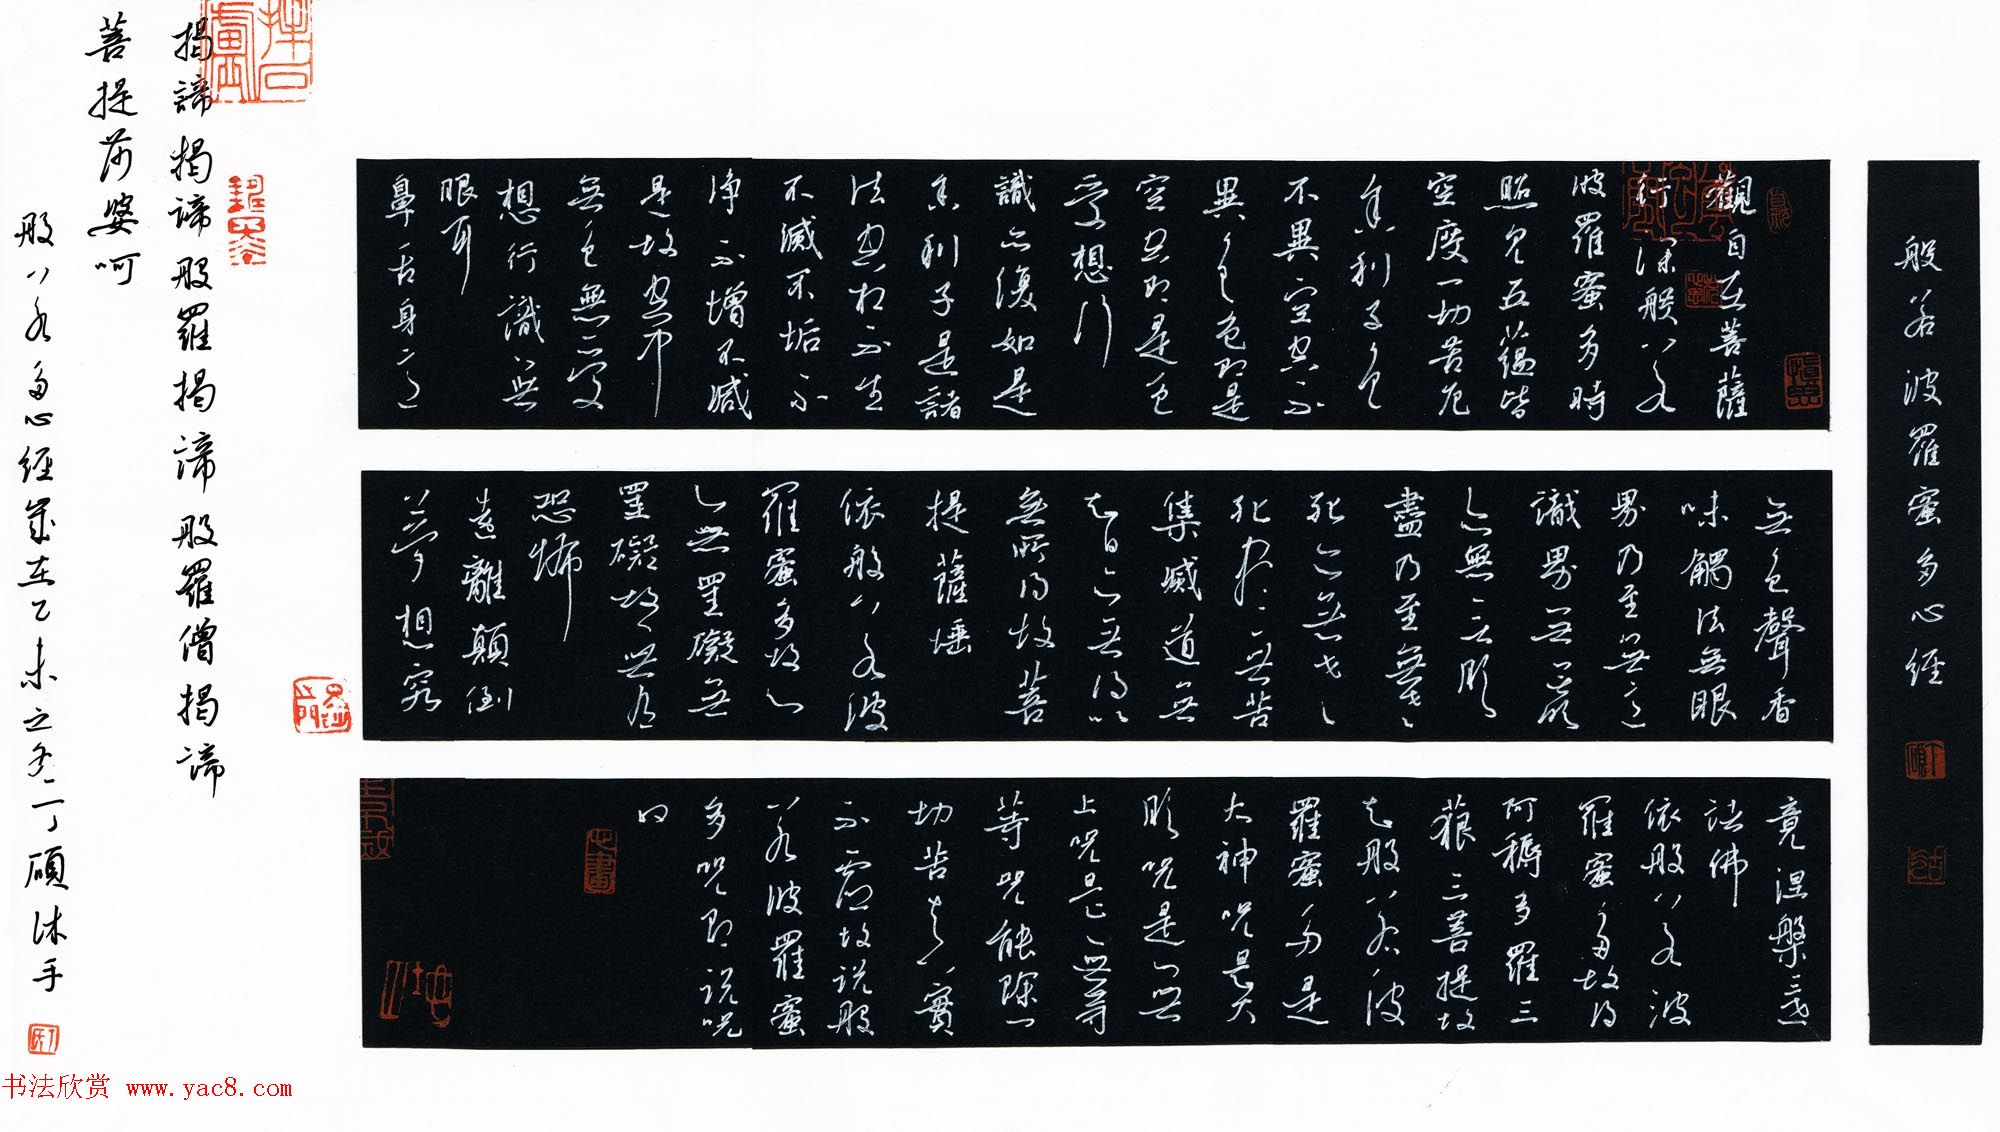 般若波羅蜜多心経
觀自在菩薩
行深般若
波羅蜜多時
照見五蘊皆
空度一切苦厄
舍利子色
不異空空不
異色色即是
空空即是色
受想行
識亦復如是
舍利子是諸
法空相不生
不滅不垢不
淨不增不減
是故空中
無色無受
想行識無
眼耳
鼻舌身意
無色聲香
味觸法無眼
界乃至無意
識界無無明
亦無無明
盡乃至無老
死亦無老
死盡無苦
集滅道無
智亦無得以
無所得故菩
提薩埵
依般若波
羅蜜多故心
無罣礙無
罣礙故無有
恐怖
遠離顛倒
夢想究
竟涅槃三世
諸佛
依般若波
羅蜜多故得
阿耨多羅三
藐三菩提故
知般若波
羅蜜多是
大神咒是大
明咒是無
上咒是無等
等咒能除一
切苦真實
不虛故說般
若波羅蜜
多咒即說咒
曰
揭諦揭諦般羅揭諦般羅僧揭諦
菩提莎婆呵
般若多心経歲在乙未之冬丁碩沐手
书法欣赏 www.yac8.com